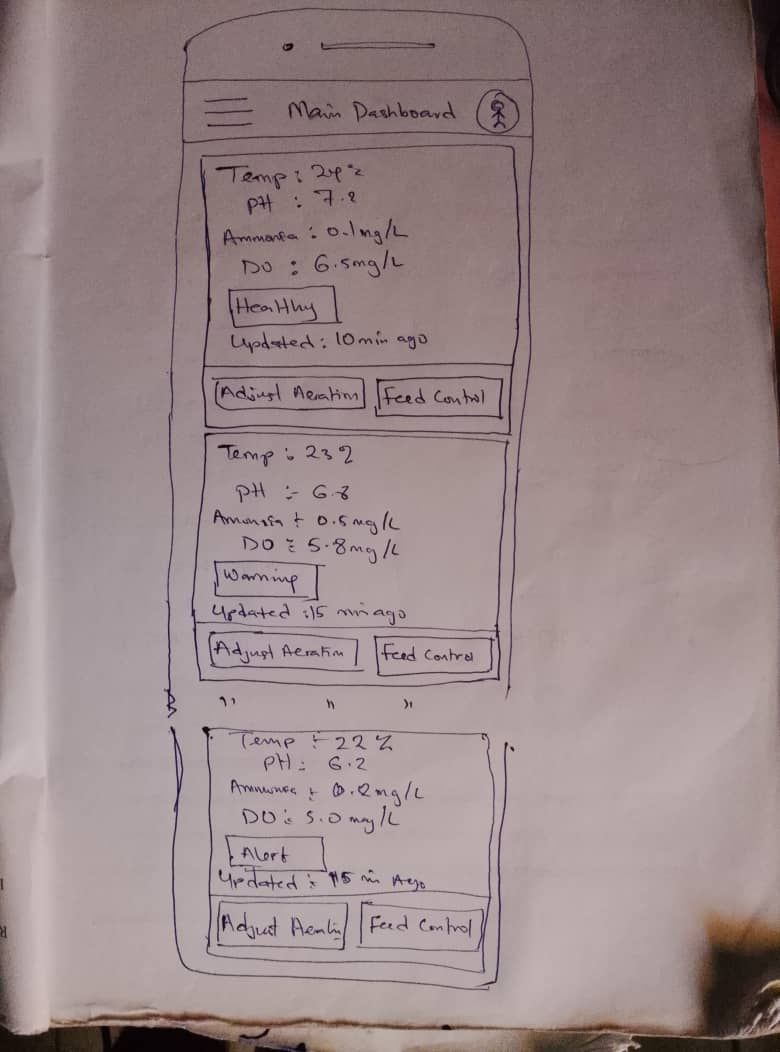 Main Dashboard
Temp : 24°C
pH : 7.2
Ammonia : 0.1mg/L
DO : 6.5mg/L
Healthy
Updated : 10 min ago
Adjust Aeration Feed Control
Temp : 23
pH :- 6.8
Ammonia : 0.5 mg/L
DO : 5.8mg/L
Warning
Updated : 15 min ago
Adjust Aeration Feed Control
" " "
Temp : 22
pH : 6.2
Ammonia : 0.2mg/L
DO : 5.0 mg/L
Alert
Updated : 15 min Ago
Adjust Aeratin Feed Control